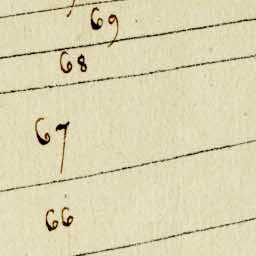 69
68
67
66